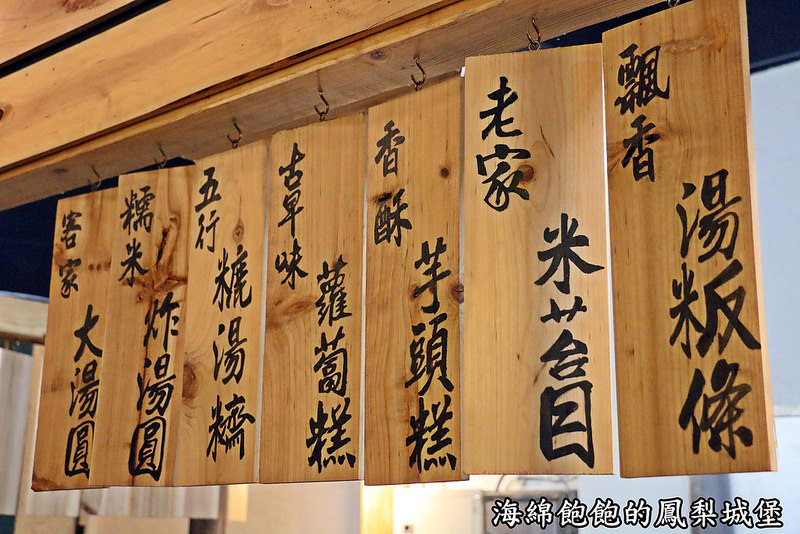 飄香
湯粄條
老家
米苔目
香酥
芋頭糕
古早味
蘿蔔糕
五行
湯
糯米
炸湯圓
客家
大湯圓
海綿飽飽的鳳梨城堡